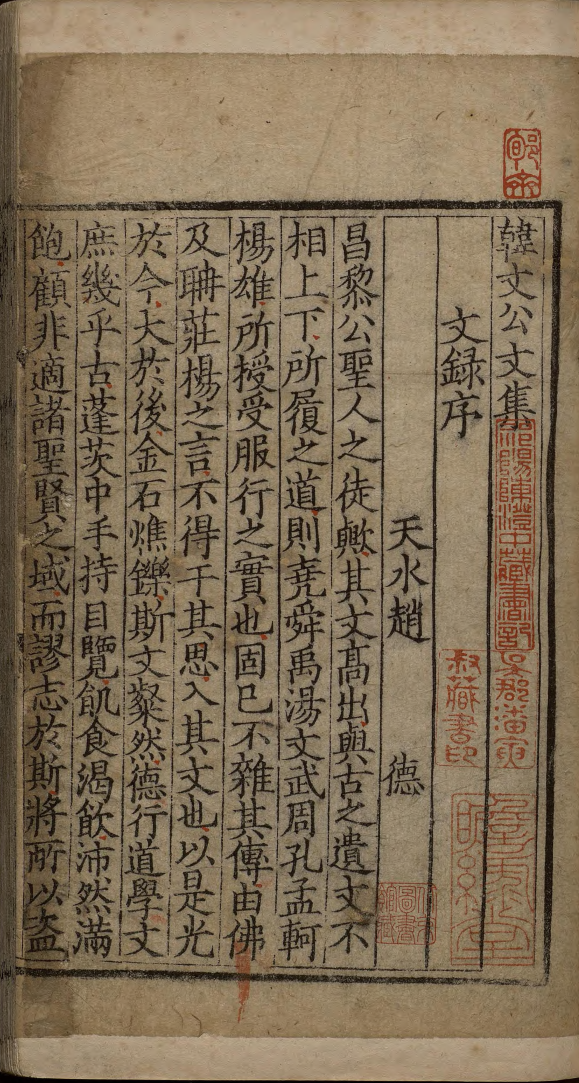 韓文公文集
文録序
天水趙 德
昌黎公聖人之徒歟其文髙出與古之遺文不
相上下所履之道則堯舜禹湯文武周孔孟軻
楊雄所授受服行之實也固已不雜其傳由佛
及聃莊楊之言不得干其思入其文也以是光
於今大於後金石燋鑠斯文粲然德行道學文
庶幾乎古蓬茨中手持目覽飢食渴飲沛然滿
飽顧非適諸聖賢之域而謬志於斯將所以盗
祁陽陳澄中藏書記
叔藏書印